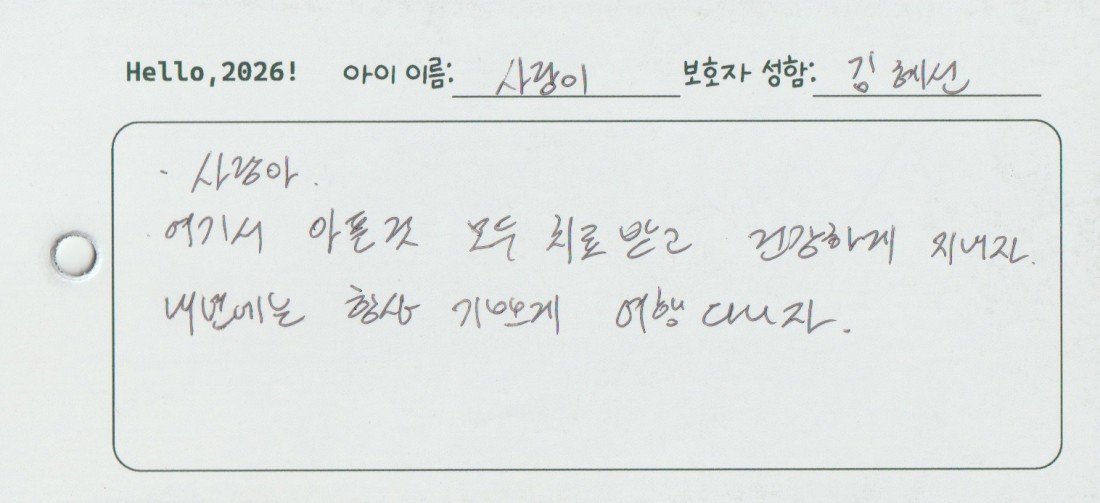 Hello, 2026! 아이 이름: 사랑이 보호자 성함: 김혜선
· 사랑아.
여기서 아픈것 모두 치료받고 건강하게 지내자.
내년에는 항상 기쁘게 여행 다니자.